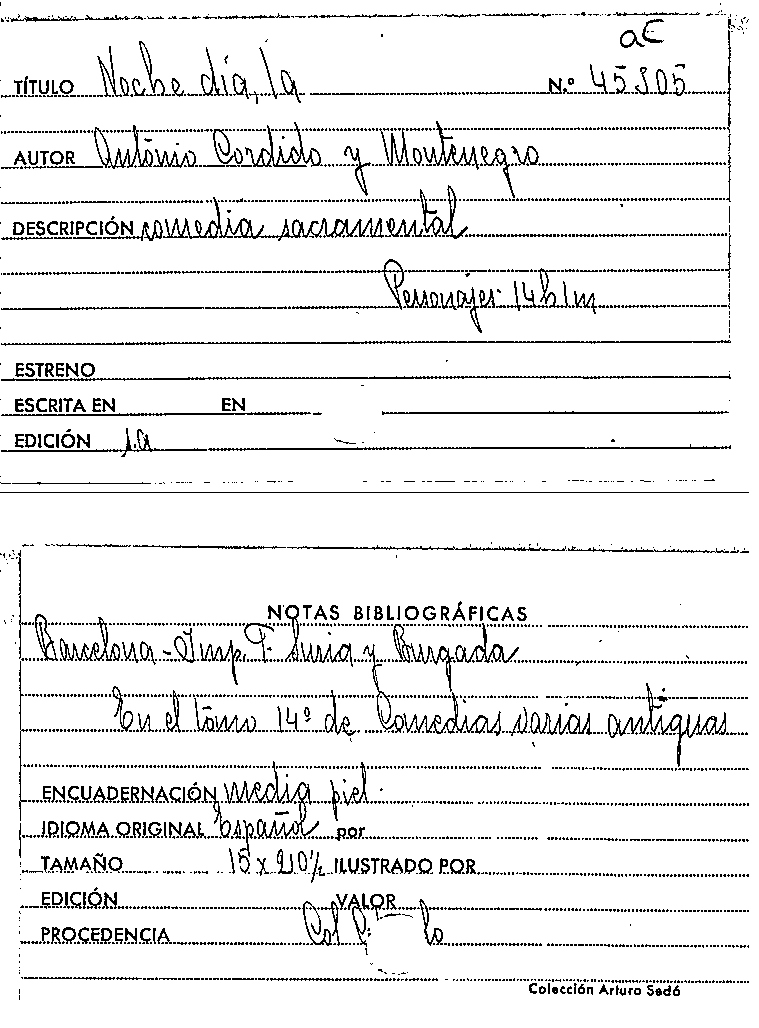 aC
TÍTULO Noche día, la N.º 45305
AUTOR Antonio Cordido y Montenegro
DESCRIPCIÓN comedia sacramental
Personajes 14h 1m
ESTRENO
ESCRITA EN EN
EDICIÓN s.a
NOTAS BIBLIOGRÁFICAS
Barcelona - Imp. F. Suria y Burgada
En el tomo 14º de Comedias varias antiguas
ENCUADERNACIÓN media piel.
IDIOMA ORIGINAL Español por
TAMAÑO 15 x 20½ ILUSTRADO POR
EDICIÓN VALOR
PROCEDENCIA Col
Colección Arturo Sedó